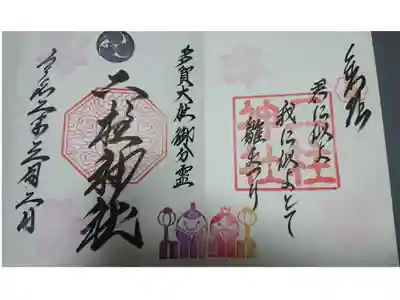 奉拝
君に似よ
我に似よとて
雛まつり
二柱
神社
多賀大社御分霊
二柱神社
令和三年三月三日